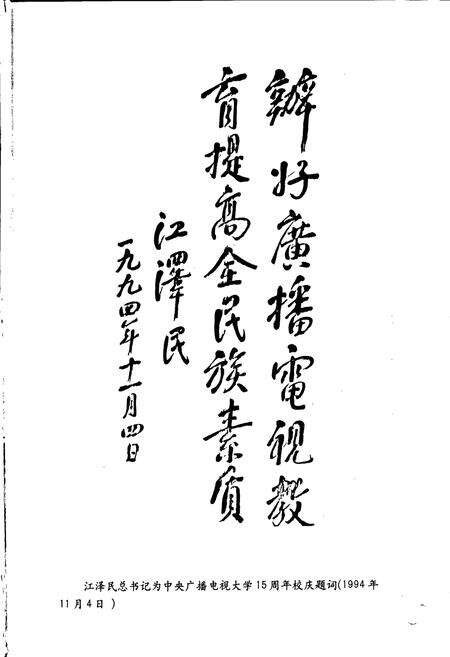 辦好廣播電視教
育提高全民族素质
江澤民
一九九四年十一月四日
江泽民总书记为中央广播电视大学15周年校庆题词(1994年
11月4日 )